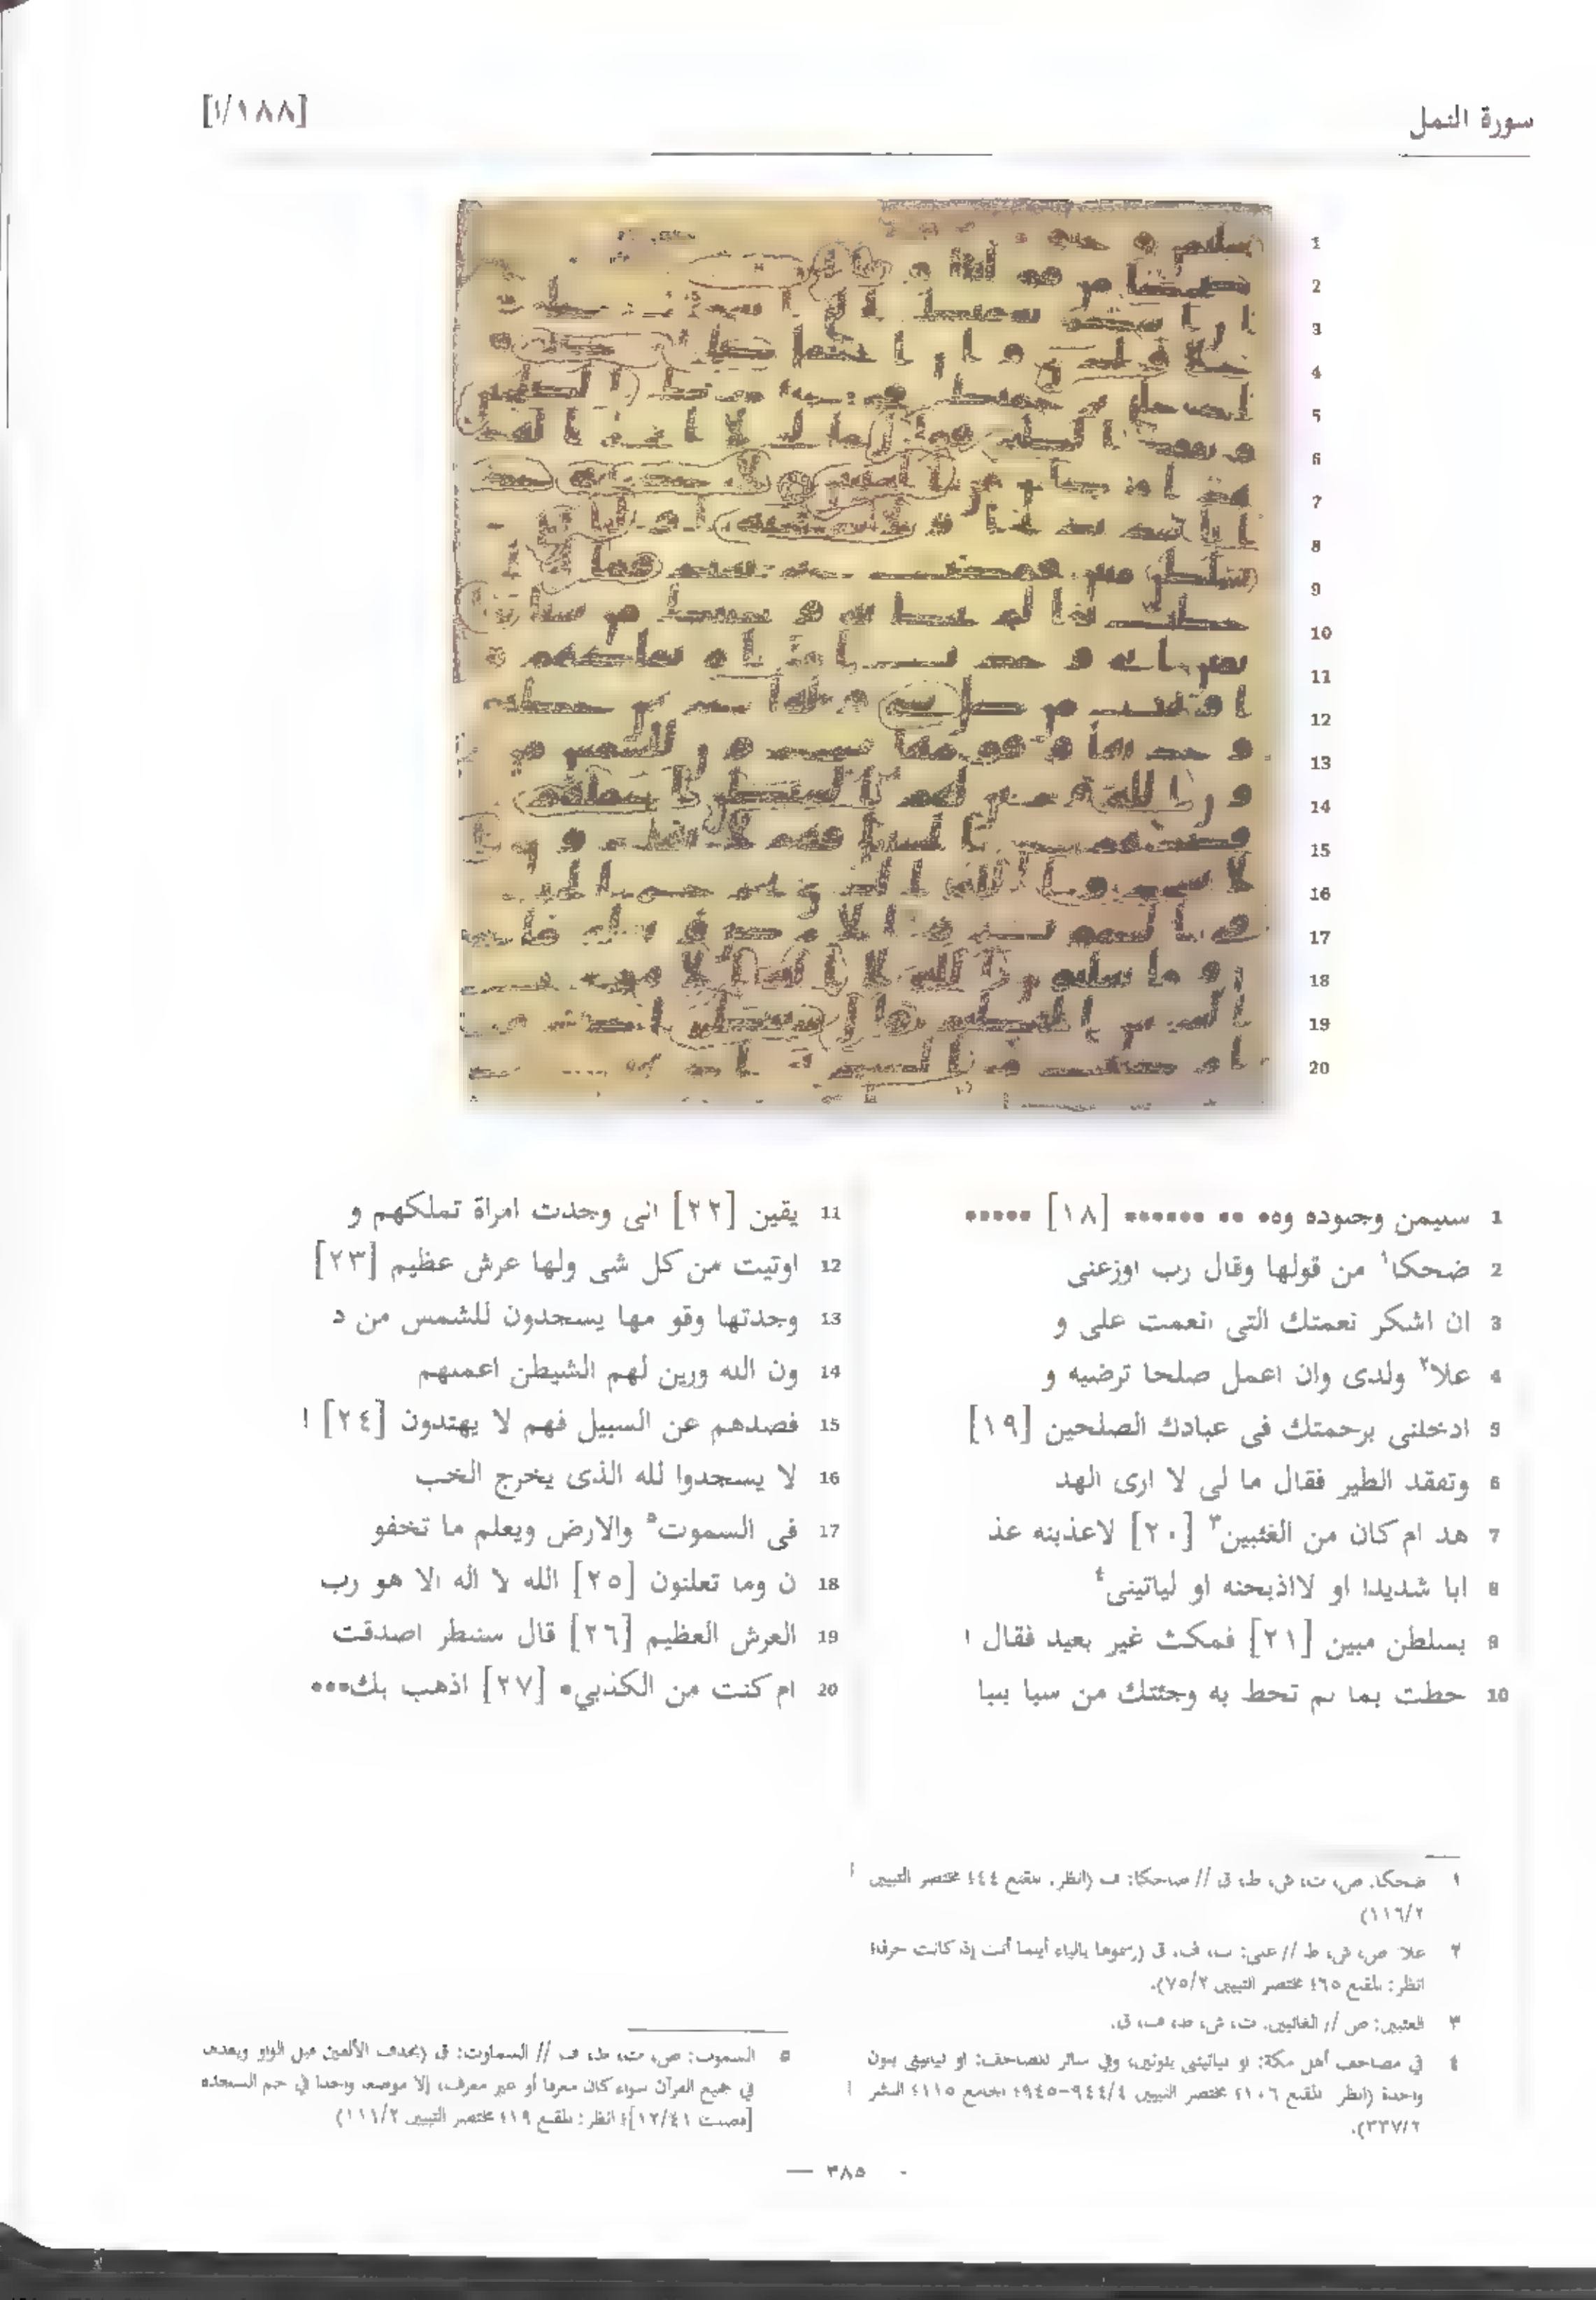 سورة النمل
[١٨٨/أ]
1 سليمن وجنوده و٥٥ ٥٥ ٥٥ ٥٥٥٥٥٥ [١٨] ٥٥٥٥٥
2 ضحكا١ من قولها وقال رب اوزعنى
3 ان اشكر نعمتك التى انعمت على و
4 علا٢ ولدى وان اعمل صلحا ترضيه و
5 ادخلنى برحمتك فى عبادك الصلحين [١٩]
6 وتفقد الطير فقال ما لى لا ارى الهد
7 هد ام كان من الغئبين٣ [٢٠] لاعذبنه عذ
8 ابا شديدا او لااذبحنه او لياتينى٤
9 بسلطن مبين [٢١] فمكث غير بعيد فقال ا
10 حطت بما لم تحط به وجئتك من سبا بنبا
11 يقين [٢٢] انى وجدت امراة تملكهم و
12 اوتيت من كل شى ولها عرش عظيم [٢٣]
13 وجدتها وقو مها يسجدون للشمس من د
14 ون الله وزين لهم الشيطن اعملهم
15 فصدهم عن السبيل فهم لا يهتدون [٢٤] ا
16 لا يسجدوا لله الذى يخرج الخب
17 فى السموت٥ والارض ويعلم ما تخفو
18 ن وما تعلنون [٢٥] الله لا اله الا هو رب
19 العرش العظيم [٢٦] قال سننظر اصدقت
20 ام كنت من الكذبي٥ [٢٧] اذهب بك٥٥٥
١ ضحكا: ص، ت، ش، ط، ق // ضاحكا: ف (انظر: المقنع ٤٤؛ مختصر التبيين
١١٦/٢)
٢ علا: ص، ش، ط // على: ت، ف، ق (رسموها بالياء أينما أتت إذ كانت حرفا؛
انظر: المقنع ٦٥؛ مختصر التبيين ٧٥/٢).
٣ الغئبين: ص // الغائبين: ت، ش، ط، ف، ق.
٤ في مصاحف أهل مكة: او لياتيننى بنونين، وفي سائر المصاحف: او لياتينى بنون
واحدة (انظر: المقنع ١٠٦؛ مختصر التبيين ٩٤٤/٤-٩٤٥؛ الجامع ١١٥؛ النشر
٣٣٧/٢).
٥ السموت: ص، ت، ط، ف // السماوت: ق (بحذف الألفين قبل الواو وبعدها
في جميع القرآن سواء كان معرفا أو غير معرف، إلا موضعا واحدا في حم السجدة
[فصلت ١٢/٤١]؛ انظر: المقنع ١٩؛ مختصر التبيين ١١١/٢)
— ٣٨٥